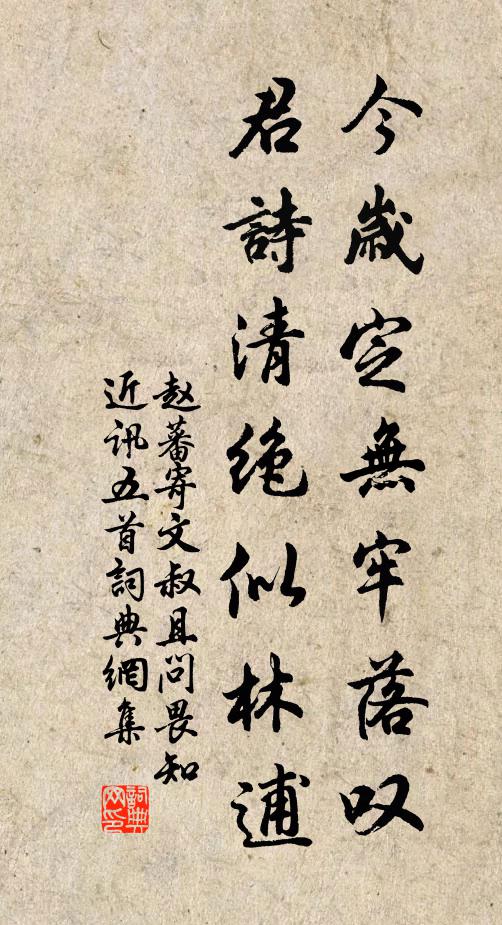 今歲定無牢落叹
君詩清绝似林逋
赵蕃寄文叔且问畏知
近讯五首詞典網集
詞典网印